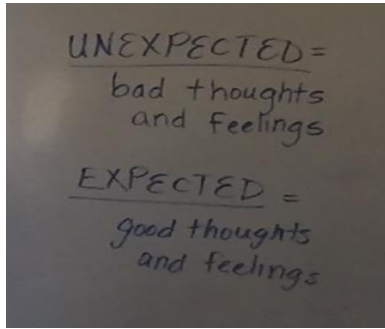 UNEXPECTED =
bad thoughts
and feelings
EXPECTED =
good thoughts
and feelings